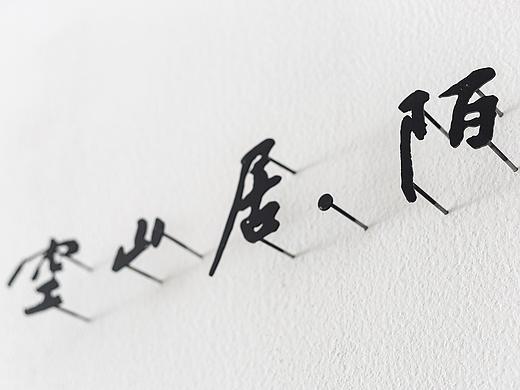 空山居·陌